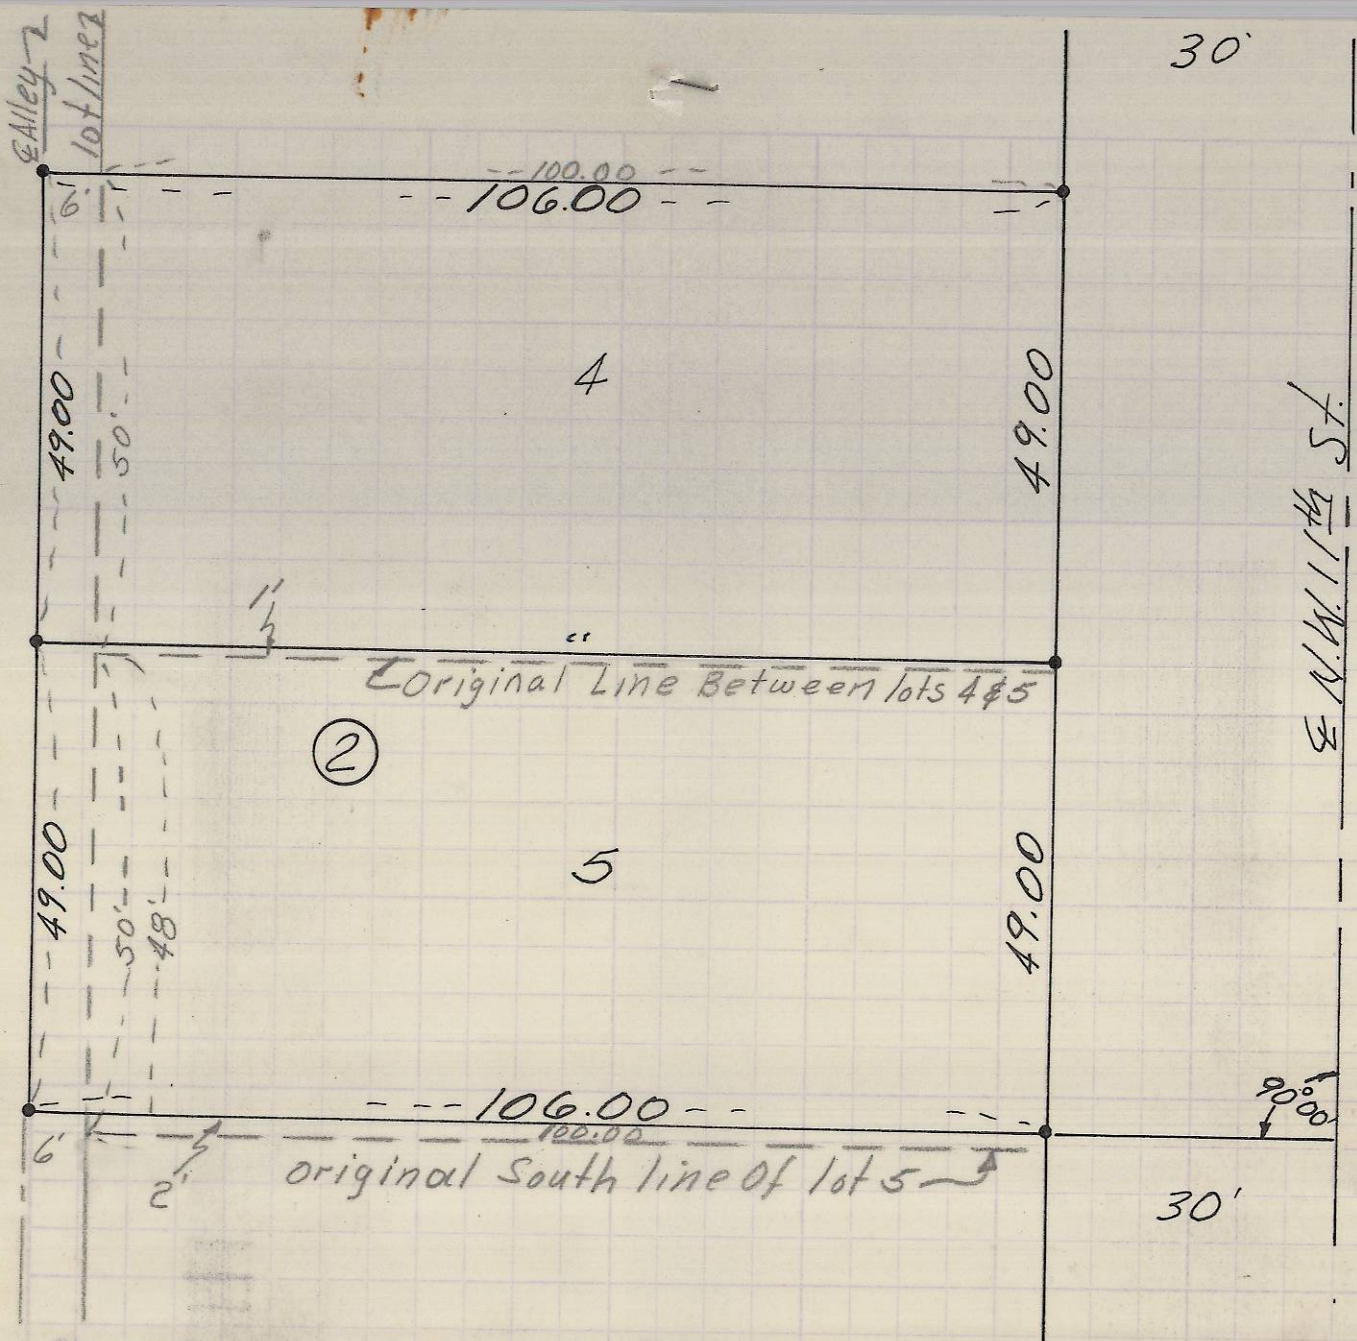 ℄ Alley
lot line
30'
100.00
106.00
6'
49.00
50'
4
49.00
℄ N.W. 11th St.
1'
"
Original Line Between lots 4 & 5
2
49.00
50'
48'
5
49.00
90°00'
106.00
100.00
6'
2'
original South line Of lot 5
30'